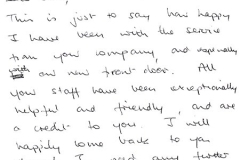 This is just to say how happy
I have been with the service
from your company, and especially
with our new front door. All
your staff have been exceptionally
helpful and friendly, and are
a credit to you. I will
happily come back to you
I need any further